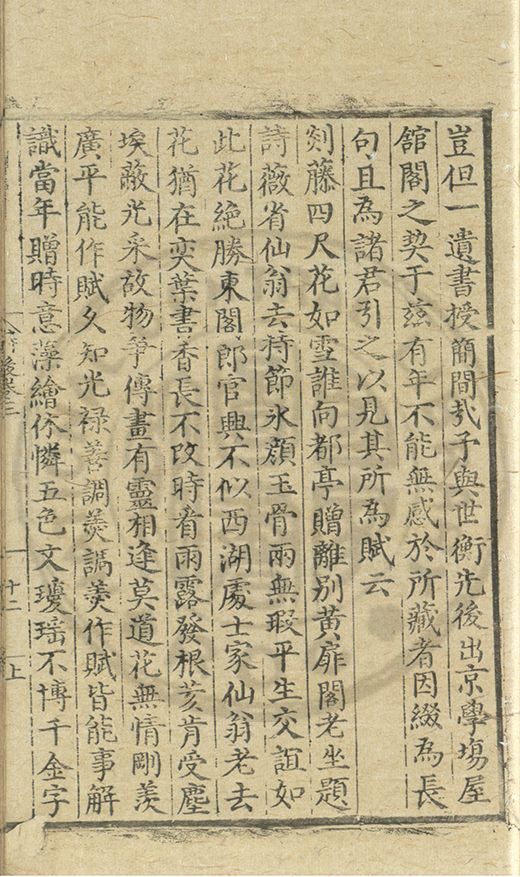 豈但一遺書授簡間㢤予與世衡先後出京學塲屋
舘閣之契于兹有年不能無感於所藏者因綴為長
句且為諸君引之以見其所為賦云
剡藤四尺花如雪誰向都亭贈離别黄扉閣老坐題
詩薇省仙翁去持節氷顔玉骨兩無瑕平生交誼如
此花絶勝東閣郎官興不似西湖處士家仙翁老去
花猶在奕葉書香長不改時看雨露發根荄肯受塵
埃蔽光采故物争傳畫有靈相逢莫道花無情剛羡
廣平能作賦久知光禄善調羮調羮作賦皆能事解
識當年贈時意藻繪俢憐五色文瓊瑶不博千金字
後卷三
十二
上